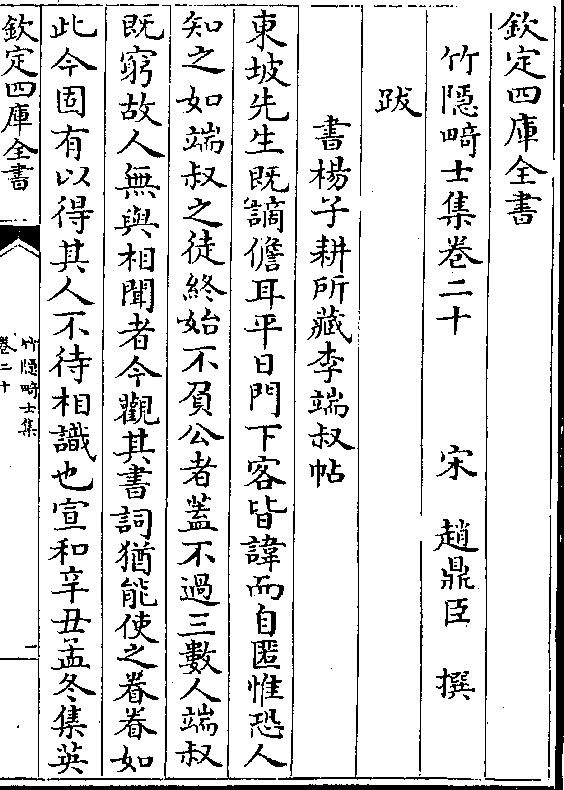 欽定四庫全書
竹隠畸士集卷二十　宋　趙鼎臣　撰
跋
書楊子耕所藏李端叔帖
東坡先生既謫儋耳平日門下客皆諱而自匿惟恐人
知之如端叔之徒終始不負公者葢不過三數人端叔
既窮故人無與相聞者今觀其書詞猶能使之眷眷如
此今固有以得其人不待相識也宣和辛丑孟冬集英
欽定四庫全書
竹隠畸士集
卷二十
一